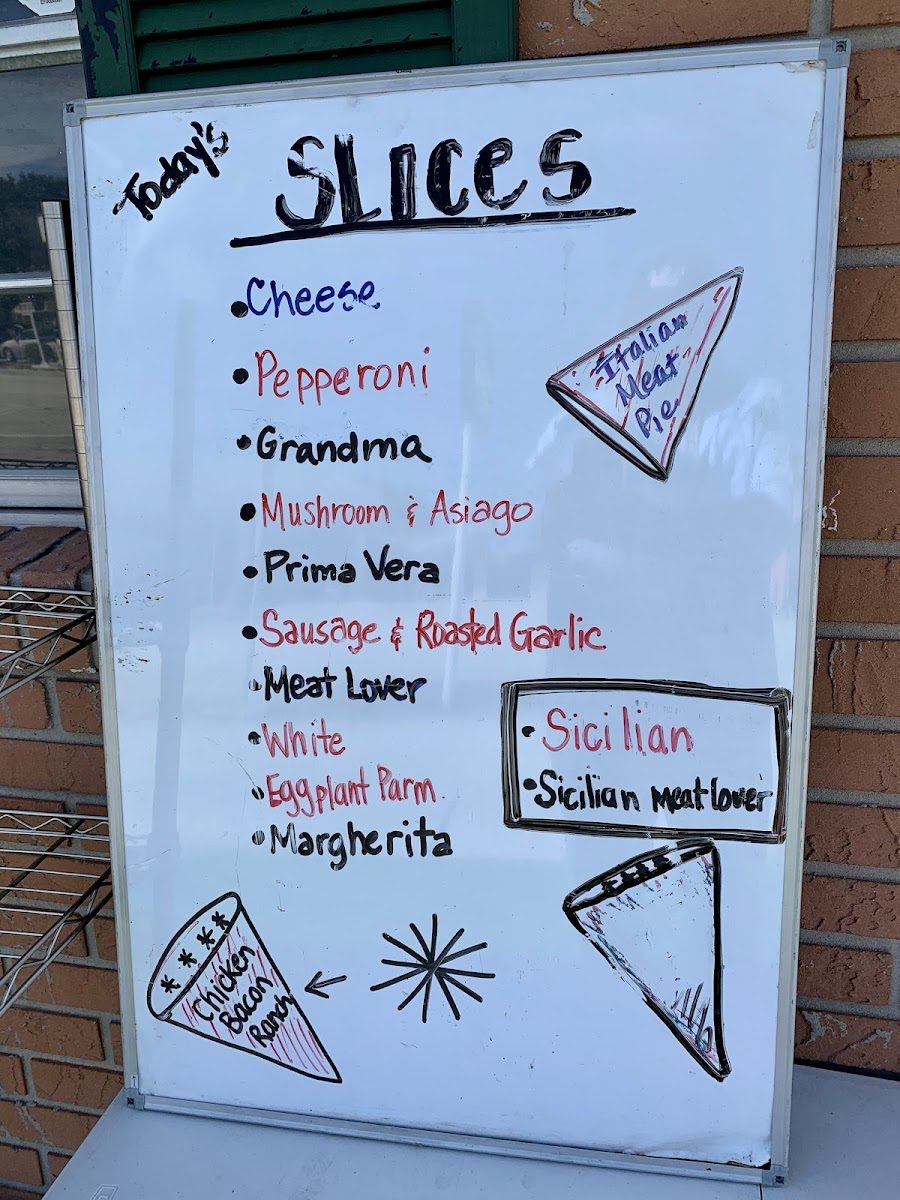 Today's
SLICES
• Cheese
• Pepperoni
• Grandma
• Mushroom & Asiago
• Prima Vera
• Sausage & Roasted Garlic
• Meat Lover
• White
• Eggplant Parm
• Margherita
Italian
Meat
Pie
• Sicilian
• Sicilian Meat lover
Chicken
Bacon
Ranch